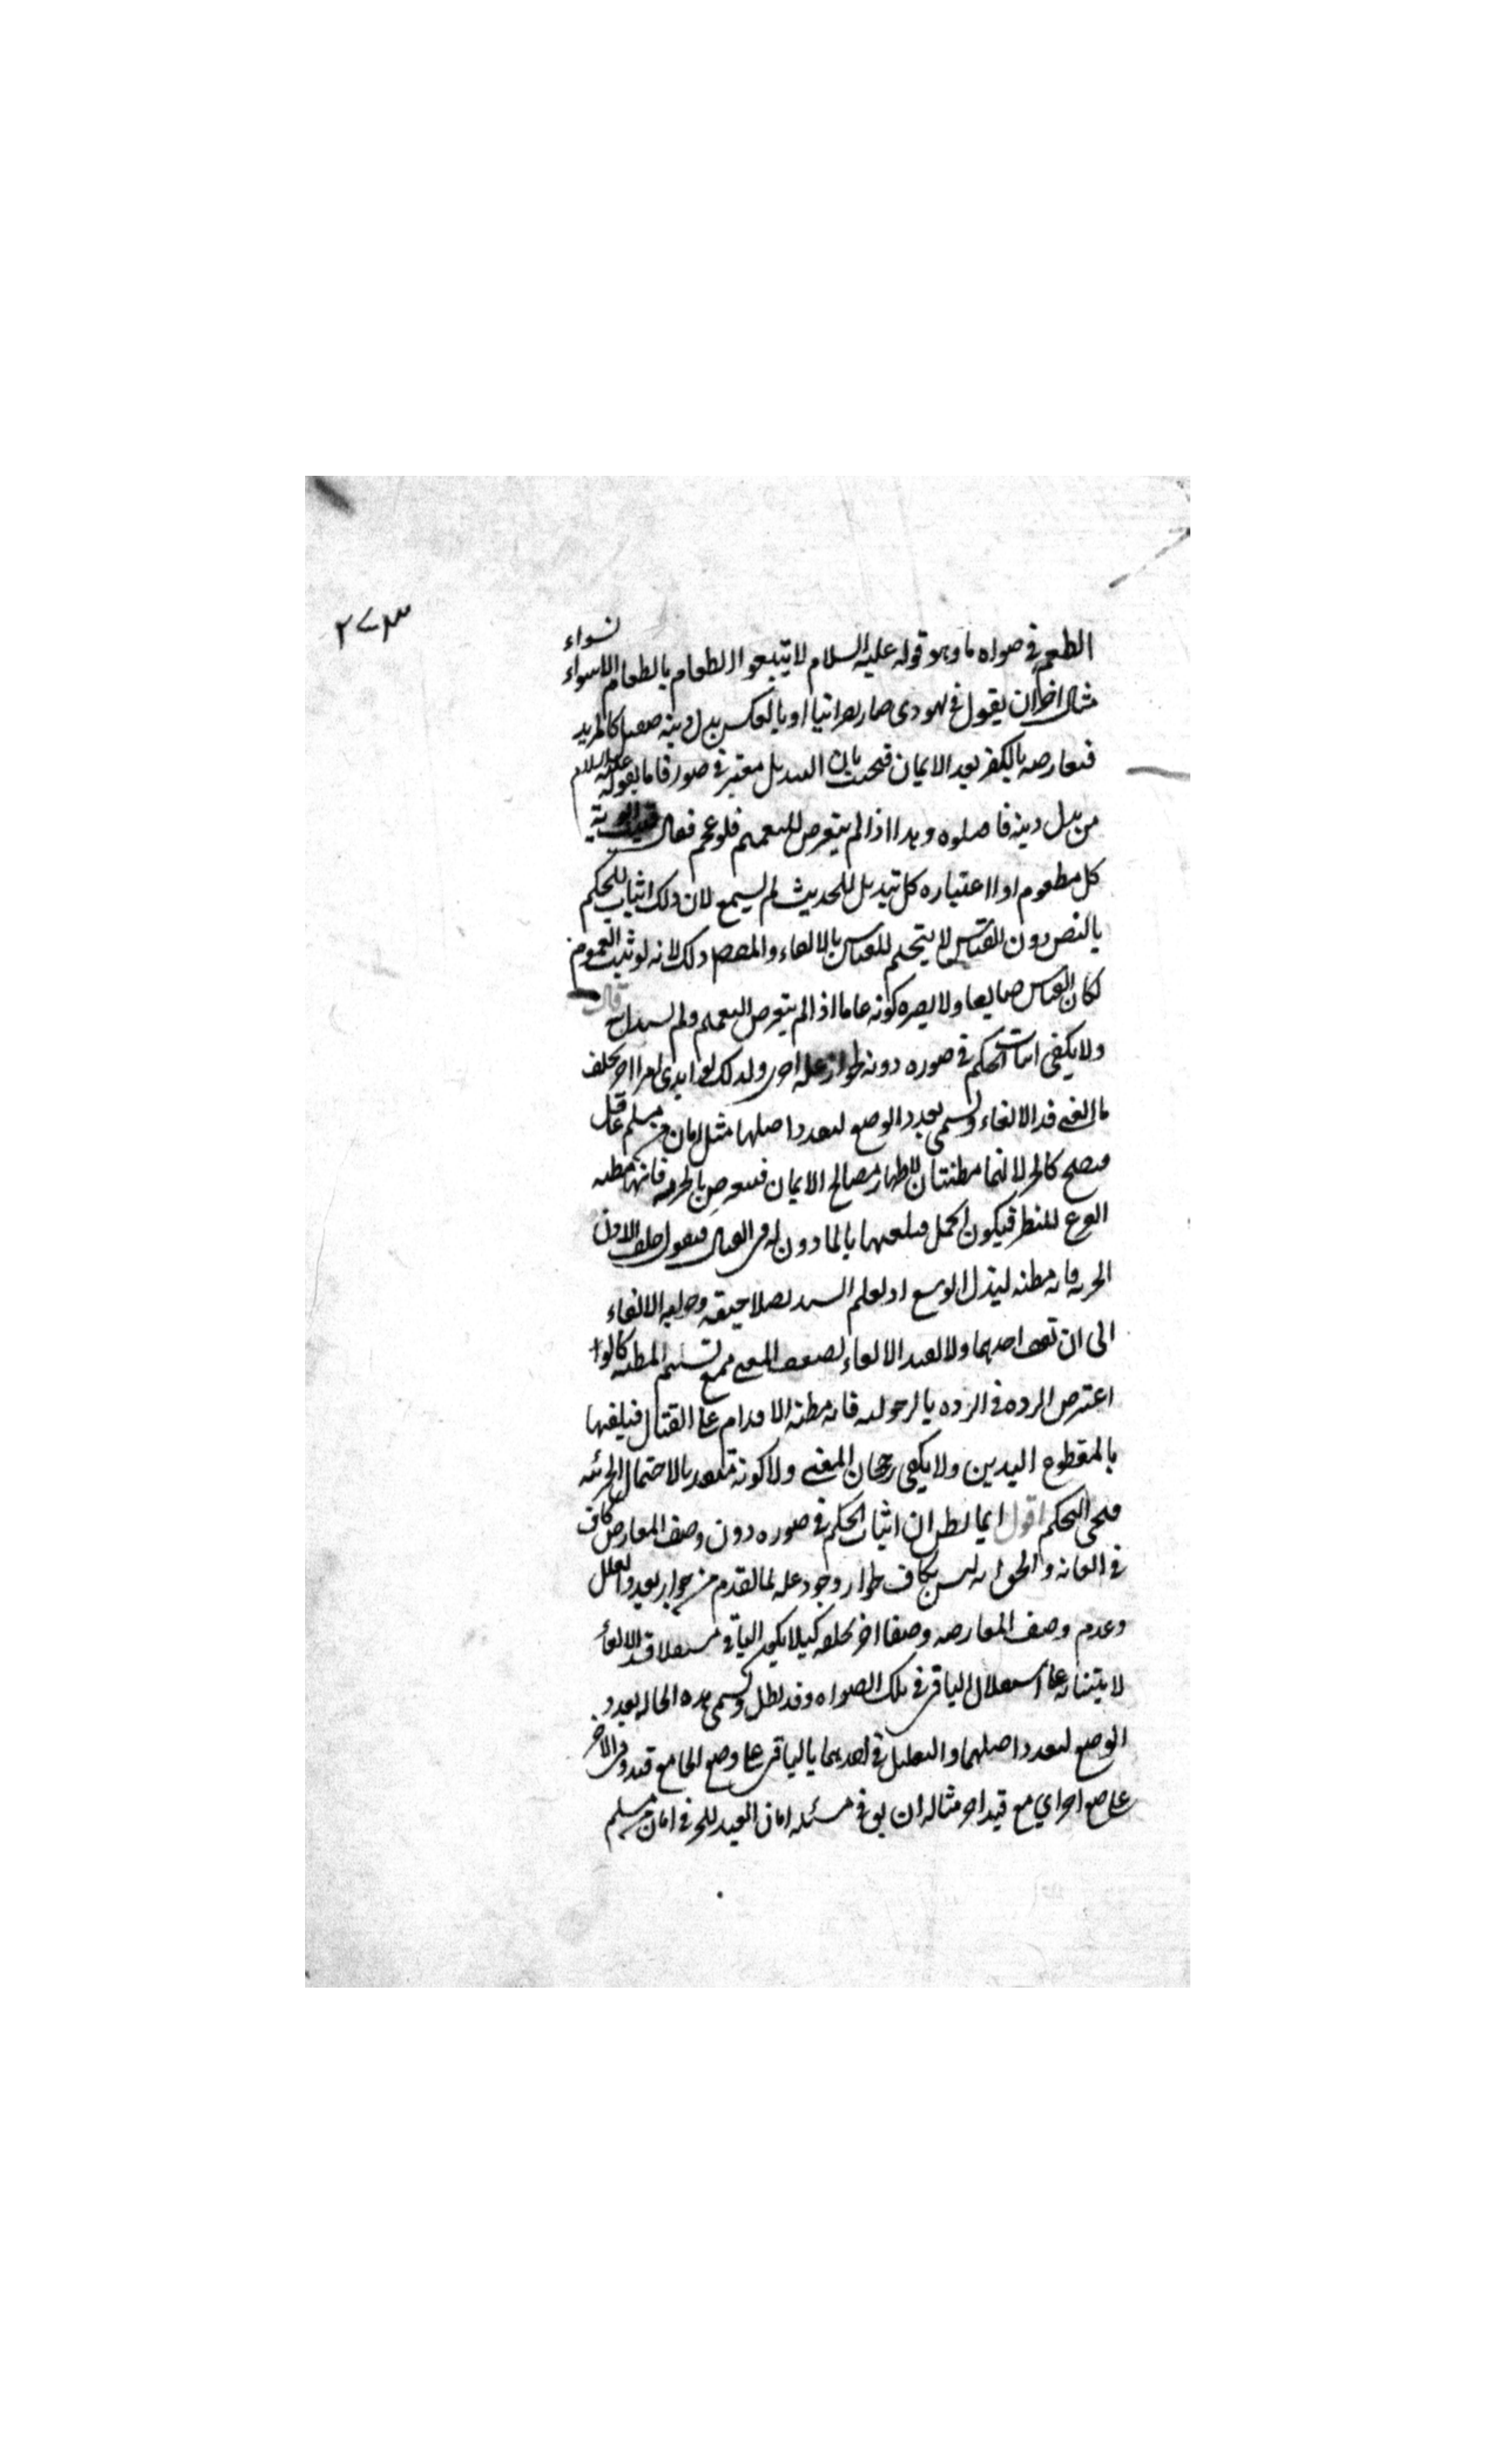 ٢٧٣
الطعم في صوره ما وهو قوله عليه السلام لا تبيعوا الطعام بالطعام الا سواء بسواء
مثال اخر ان يقول في يهودي صار نصرانيا او بالعكس بدل دينه فيقتل كالمرتد
فيعارضه بالكفر بعد الايمان فيجيب بان التبديل معتبر في صورة ما بقوله عليه السلام
من بدل دينه فاقتلوه وهذا اذا لم يتعرض للتعميم فلو عمم فقال
كل مطعوم او اعتباره كل تبديل للحديث لم يسمع لان ذلك اثبات للحكم
بالنص دون القياس لا تتميم للقياس بالالغاء والمقصود ذلك لانه لو ثبت العموم
لكان القياس ضايعا ولا يضره كونه عاما اذا لم يتعرض للتعميم ولم يستدل به قال
ولا يكفي اثبات الحكم في صوره دونه لجواز عله اخرى ولذلك لو ابدى امرا اخر يخلف
ما الغي فسد الالغاء ويسمى تعدد الوضع لتعدد اصلها مثل امان من مسلم عاقل
فيصح كالحر لانهما مظنتان لاظهار مصالح الايمان فيعترض بالحريه فانها مظنه
الفراغ للنظر فيكون اكمل فيلغيها بالماذون له في القتال فيقول خلف الاذن
الحريه فانه مظنه لبذل الوسع او لعلم السيد بصلاحيته وجوابه الالغاء
الى ان يقف احدهما ولا يفيد الالغاء لضعف المعنى مع تسليم المظنه كما لو
اعترض الرده في الرده بالرجوليه فانه مظنه الاقدام على القتال فيلغيها
بالمقطوع اليدين ولا يكفي رجحان المعين ولا كونه متعديا لاحتمال الجزئيه
فيجيء التحكم اقول ربما يظن ان اثبات الحكم في صوره دون وصف المعارض كاف
في الغائه والحق انه ليس بكاف لجواز وجود عله لما تقدم من جواز تعدد العلل
وعدم وصف المعارضه وصفا اخر يخلفه كيلا يكون الباقي مستقلا فسد الالغاء
لابتنائه على استقلال الباقي في تلك الصوره وقد بطل وتسمى هذه الحاله تعدد
الوضع لتعدد اصليهما والتعليل في احدهما بالباقي على وضع اي مع قيد وفي الاخر
على وضع اخر اي مع قيد اخر مثاله ان يق في مسئله امان العبد للحربي امان من مسلم